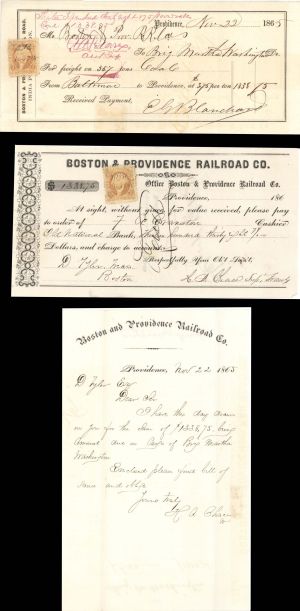 Providence, Nov 22 1865
Boston & Prov R.R. Co
To Brig Martha Washington Dr.
For freight on 357 tons Coal
From Baltimore to Providence, at $3.75 per ton 1338.75
Received Payment,
Blanchard
BOSTON & PROVIDENCE RAILROAD CO.
$ 1338.75
Office Boston & Providence Railroad Co.
Providence, 186
At sight, without grace, for value received, please pay
to order of Cashier
Old National Bank, thirteen hundred thirty eight 75/100
Dollars, and charge to account.
Respectfully Your Ob't Serv't.
D. Tyler, Treas.
Boston
H. A. Chace
Boston and Providence Railroad Co.
Providence, Nov 22 1865
D Tyler Esq
Dear Sir
I have this day drawn
on you for the sum of $1338.75, being
amount due on Cargo of Brig Martha
Washington
Enclosed please find bill of
same and
Yours truly
H A Chace